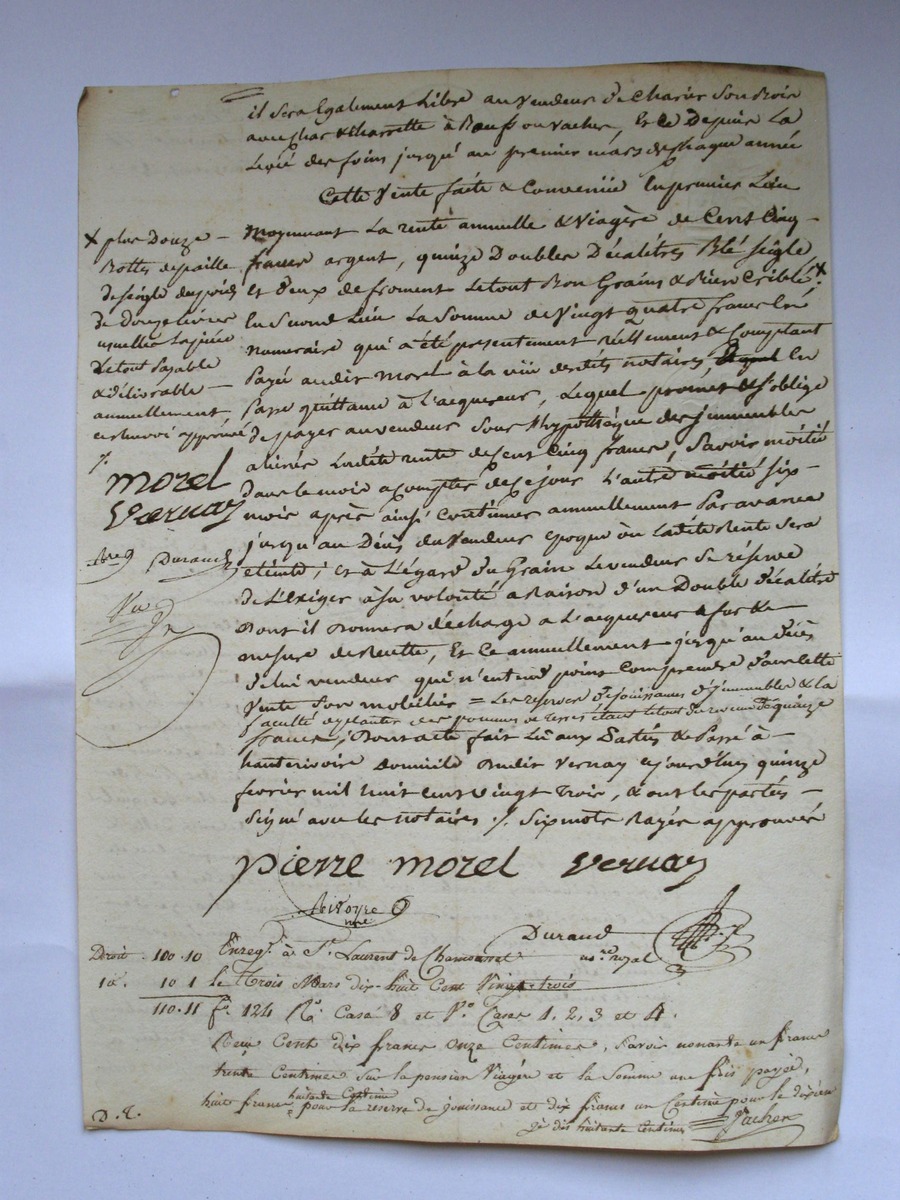 il sera Egalement Libre au vendeur de charier son bois
avec char & charrette à Bœufs ou vaches, Et ce Depuis La
Levée des foins jusqu'au premier mars de chaque année
Cette Vente faite & Convenüe En premier Lieu
moyennant La rente annuelle & viagère de Cent Cinq
francs argent, quinze Doubles Décalitres Blé seigle
et Deux de froment Le tout Bon Grains & Bien Criblé, x
En Second Lieu La Somme de Vingt quatre francs En
numeraire qui a été presentement Réellement & Comptant
Payé audit Morel à la vüe desdits notaires, En
Passe quittance à L'acquereur, Lequel promet & s'oblige
de payer au vendeur Sous L'hypothèque des jmmeubles
Ladite rente de Cent Cinq francs, Savoir moitié
dans le mois a Compter de Ce jour L'autre moitié six
mois après ainsi Continuer annuellement Par avance
jusqu'au Décès du Vendeur epoque où Ladite Rente sera
eteinte; et à L'égard du Grain Le vendeur Se réserve
de L'Exiger a Sa volonté a Raison d'un Double décalitre
Dont il Donnera décharge a L'acquereur a fur &
mesure de Recette, Et Ce annuellement jusqu'au décès
de lui vendeur qui n'entend point Comprendre dans Cette
Vente Son mobilier = Les réserves de jouissances d'jmmeubles & la
faculté de planter des pommes de terres étant le tout du revenu de quinze
francs; Dont acte fait Lü aux Parties & Passé à
hauterivoire Domicile dudit Vernay aujourd'huy quinze
fevrier mil huit cent vingt trois, & ont les parties
Signé avec les notaires ./. Six mots Rayés approuvés
x plus Douze
Bottes de paille
de seigle du poids
de Douze Livres
usuelles La pièce
Le tout Payable
& délivrable
annuellement
ce renvoi approuvé
./.
morel
Vernay
Durand
Vu
pierre morel Vernay
Durand
no.re royal
Droit . 100 . 10
10 1
110 . 11
Enreg. à St. Laurent de Chamousset
le Trois Mars dix-huit Cent Vingt-trois
f.o 124 R.o Case 8 et V.o Cases 1, 2, 3 et 4.
Reçu Cent dix francs onze Centimes, Savoir nonante un francs
trente Centimes Sur la pension Viagère et la Somme une fois payée,
huit francs huitante Centimes pour la réserve de jouissance et dix francs un Centime pour le dixième
huitante Centimes